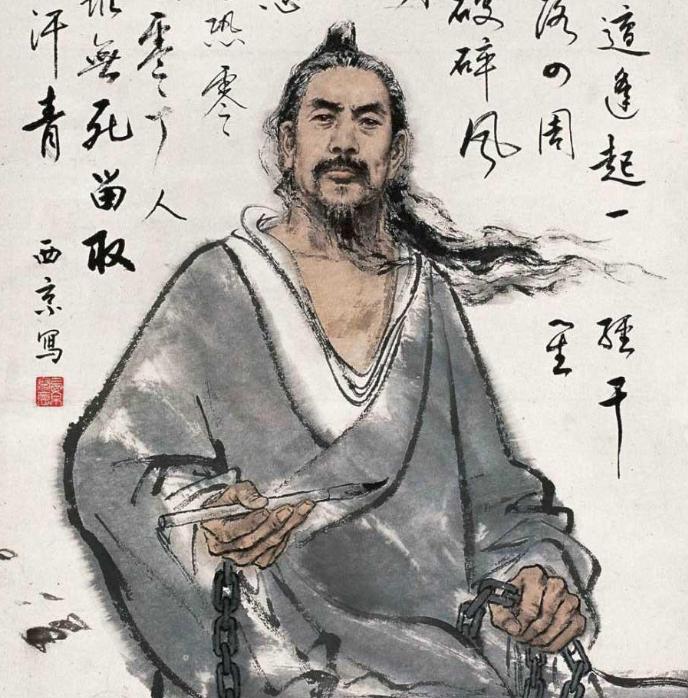 遭逢起一經干
落四周星
破碎風
恐零
零丁人
無死畄取
汗青
西京寫